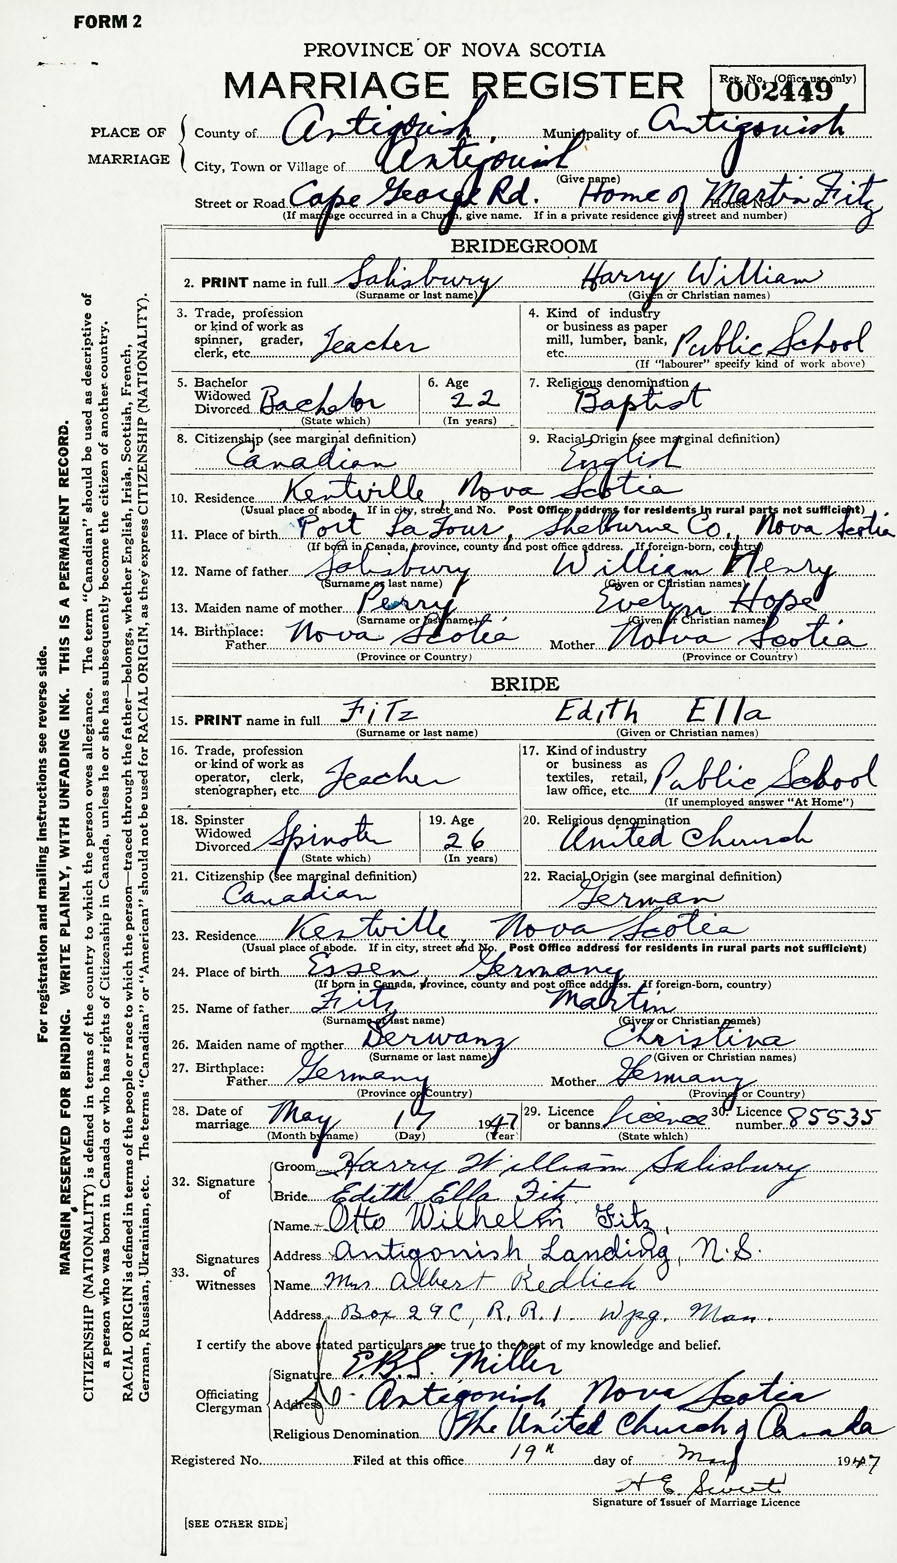 FORM 2
PROVINCE OF NOVA SCOTIA
MARRIAGE REGISTER
Reg. No. (Office use only)
002449
PLACE OF MARRIAGE
County of Antigonish, Municipality of Antigonish
City, Town or Village of Antigonish
(Give name)
Street or Road Cape George Rd. House No. Home of Martin Fitz
(If marriage occurred in a Church, give name. If in a private residence give street and number)
BRIDEGROOM
2. PRINT name in full Salisbury Harry William
(Surname or last name) (Given or Christian names)
3. Trade, profession or kind of work as spinner, grader, clerk, etc. Teacher
4. Kind of industry or business as paper mill, lumber, bank, etc. Public School
(If "labourer" specify kind of work above)
5. Bachelor Widowed Divorced Bachelor
(State which)
6. Age 22
(In years)
7. Religious denomination Baptist
8. Citizenship (see marginal definition) Canadian
9. Racial Origin (see marginal definition) English
10. Residence Kentville, Nova Scotia
(Usual place of abode. If in city, street and No. Post Office address for residents in rural parts not sufficient)
11. Place of birth Port La Tour, Shelburne Co, Nova Scotia
(If born in Canada, province, county and post office address. If foreign-born, country)
12. Name of father Salisbury William Henry
(Surname or last name) (Given or Christian names)
13. Maiden name of mother Perry Evelyn Hope
(Surname or last name) (Given or Christian names)
14. Birthplace: Father Nova Scotia Mother Nova Scotia
(Province or Country) (Province or Country)
BRIDE
15. PRINT name in full Fitz Edith Ella
(Surname or last name) (Given or Christian names)
16. Trade, profession or kind of work as operator, clerk, stenographer, etc Teacher
17. Kind of industry or business as textiles, retail, law office, etc. Public School
(If unemployed answer "At Home")
18. Spinster Widowed Divorced Spinster
(State which)
19. Age 26
(In years)
20. Religious denomination United Church
21. Citizenship (see marginal definition) Canadian
22. Racial Origin (see marginal definition) German
23. Residence Kentville, Nova Scotia
(Usual place of abode. If in city, street and No. Post Office address for residents in rural parts not sufficient)
24. Place of birth Essen Germany
(If born in Canada, province, county and post office address. If foreign-born, country)
25. Name of father Fitz Martin
(Surname or last name) (Given or Christian names)
26. Maiden name of mother Derwanz Christina
(Surname or last name) (Given or Christian names)
27. Birthplace: Father Germany Mother Germany
(Province or Country) (Province or Country)
28. Date of marriage May 17 1947
(Month by name) (Day) (Year)
29. Licence or banns licence
(State which)
30. Licence number 85535
32. Signature of
Groom Harry William Salisbury
Bride Edith Ella Fitz
33. Signatures of Witnesses
Name Otto Wilhelm Fitz,
Address Antigonish Landing, N.S.
Name Mrs Albert Redlick
Address Box 29C, R.R.1 Wpg. Man.
I certify the above stated particulars are true to the best of my knowledge and belief.
Officiating Clergyman
Signature E.B.S. Miller
Address Antigonish, Nova Scotia
Religious Denomination The United Church of Canada
Registered No. Filed at this office 19th day of May 1947
H E Sweet
Signature of Issuer of Marriage Licence
[SEE OTHER SIDE]
For registration and mailing instructions see reverse side.
MARGIN RESERVED FOR BINDING. WRITE PLAINLY, WITH UNFADING INK. THIS IS A PERMANENT RECORD.
CITIZENSHIP (NATIONALITY) is defined in terms of the country to which the person owes allegiance. The term "Canadian" should be used as descriptive of
a person who was born in Canada or who has rights of Citizenship in Canada, unless he or she has subsequently become the citizen of another country.
RACIAL ORIGIN is defined in terms of the people or race to which the person—traced through the father—belongs, whether English, Irish, Scottish, French,
German, Russian, Ukrainian, etc. The terms "Canadian" or "American" should not be used for RACIAL ORIGIN, as they express CITIZENSHIP (NATIONALITY).